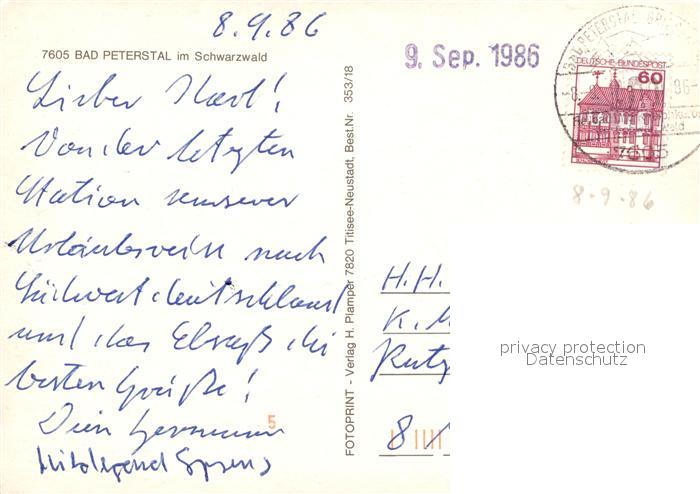 8.9.86
7605 BAD PETERSTAL im Schwarzwald
Lieber Karl!
Von der letzten
Station unserer
Urlaubsreise nach
Südwestdeutschland
und das Elsaß die
besten Grüße!
Dein Hermann
Hildegard
5
FOTOPRINT - Verlag H. Plamper 7820 Titisee-Neustadt, Best.Nr. 353/18
9. Sep. 1986
BAD PETERSTAL
DEUTSCHE BUNDESPOST
60
7605
8-9-86
H.H.
K. M
8
privacy protection
Datenschutz